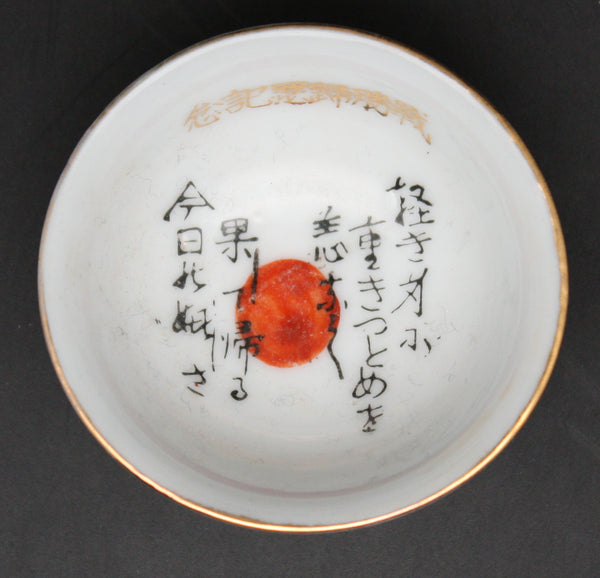 戦役歸還記念
軽き身に
重きつとめを
恙なく
果して帰る
今日の嬉しさ